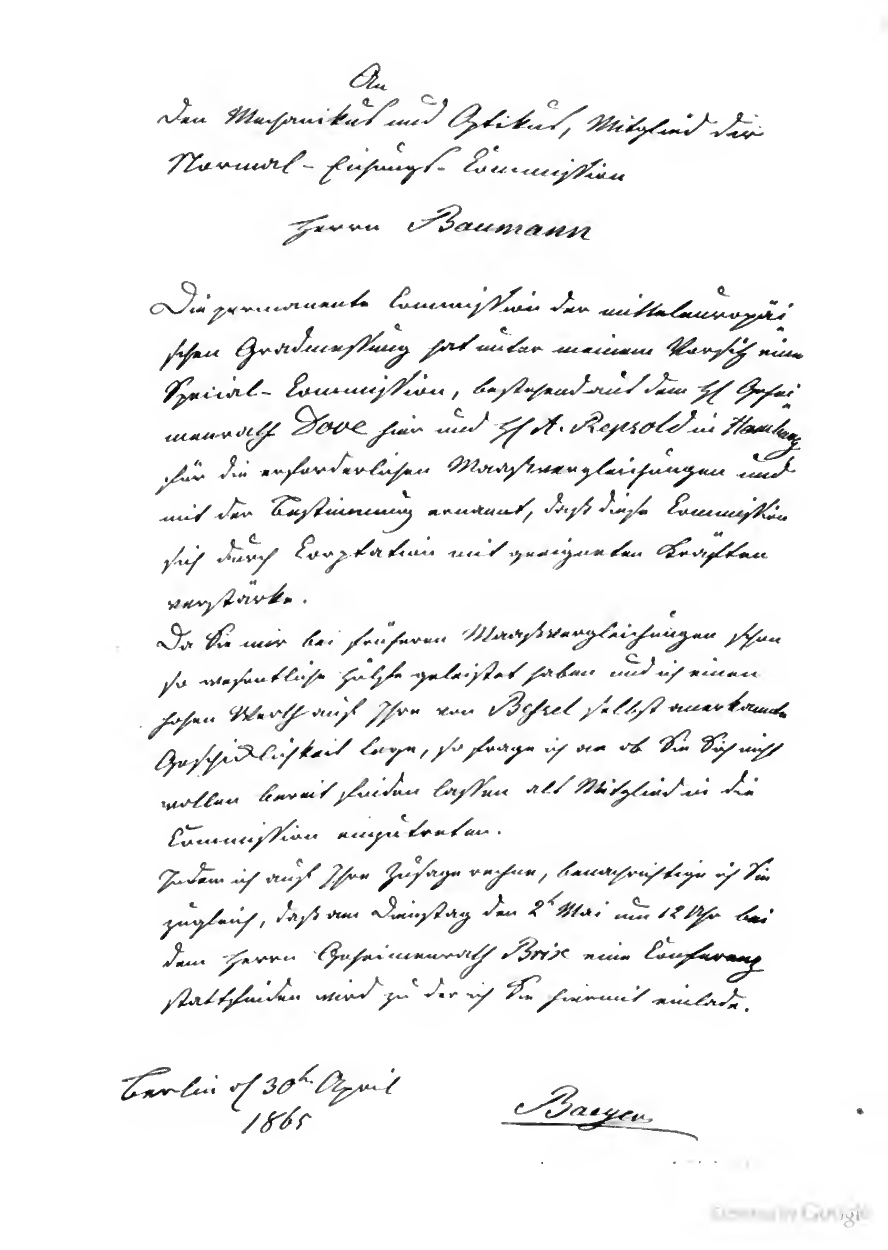 An
den Mechanikus und Optikus, Mitglied der
Normal-Eichungs-Commission
Herrn Baumann
Die permanente Commission der mitteleuropäi-
schen Gradmessung hat unter meinem Vorsitz eine
Special-Commission, bestehend aus dem H Gehei-
menrath Dove hier und H A. Repsold in Hamburg
für die erforderlichen Maaßvergleichungen und
mit der Bestimmung ernannt, daß diese Commission
sich durch Cooptation mit geeigneten Kräften
verstärke.
Da Sie mir bei früheren Maaßvergleichungen schon
so wesentliche Hülfe geleistet haben und ich einen
hohen Werth auf Ihre von Bessel selbst anerkannte
Geschicklichkeit lege, so frage ich an ob Sie Sich nicht
wollen bereit finden lassen als Mitglied in die
Commission einzutreten.
Indem ich auf Ihre Zusage rechne, benachrichtige ich Sie
zugleich, daß am Dienstag den 2t Mai um 12 Uhr bei
dem Herrn Geheimenrath Brix eine Conferenz
stattfinden wird zu der ich Sie hiermit einlade.
Berlin d 30t April
1865
Baeyer
Google